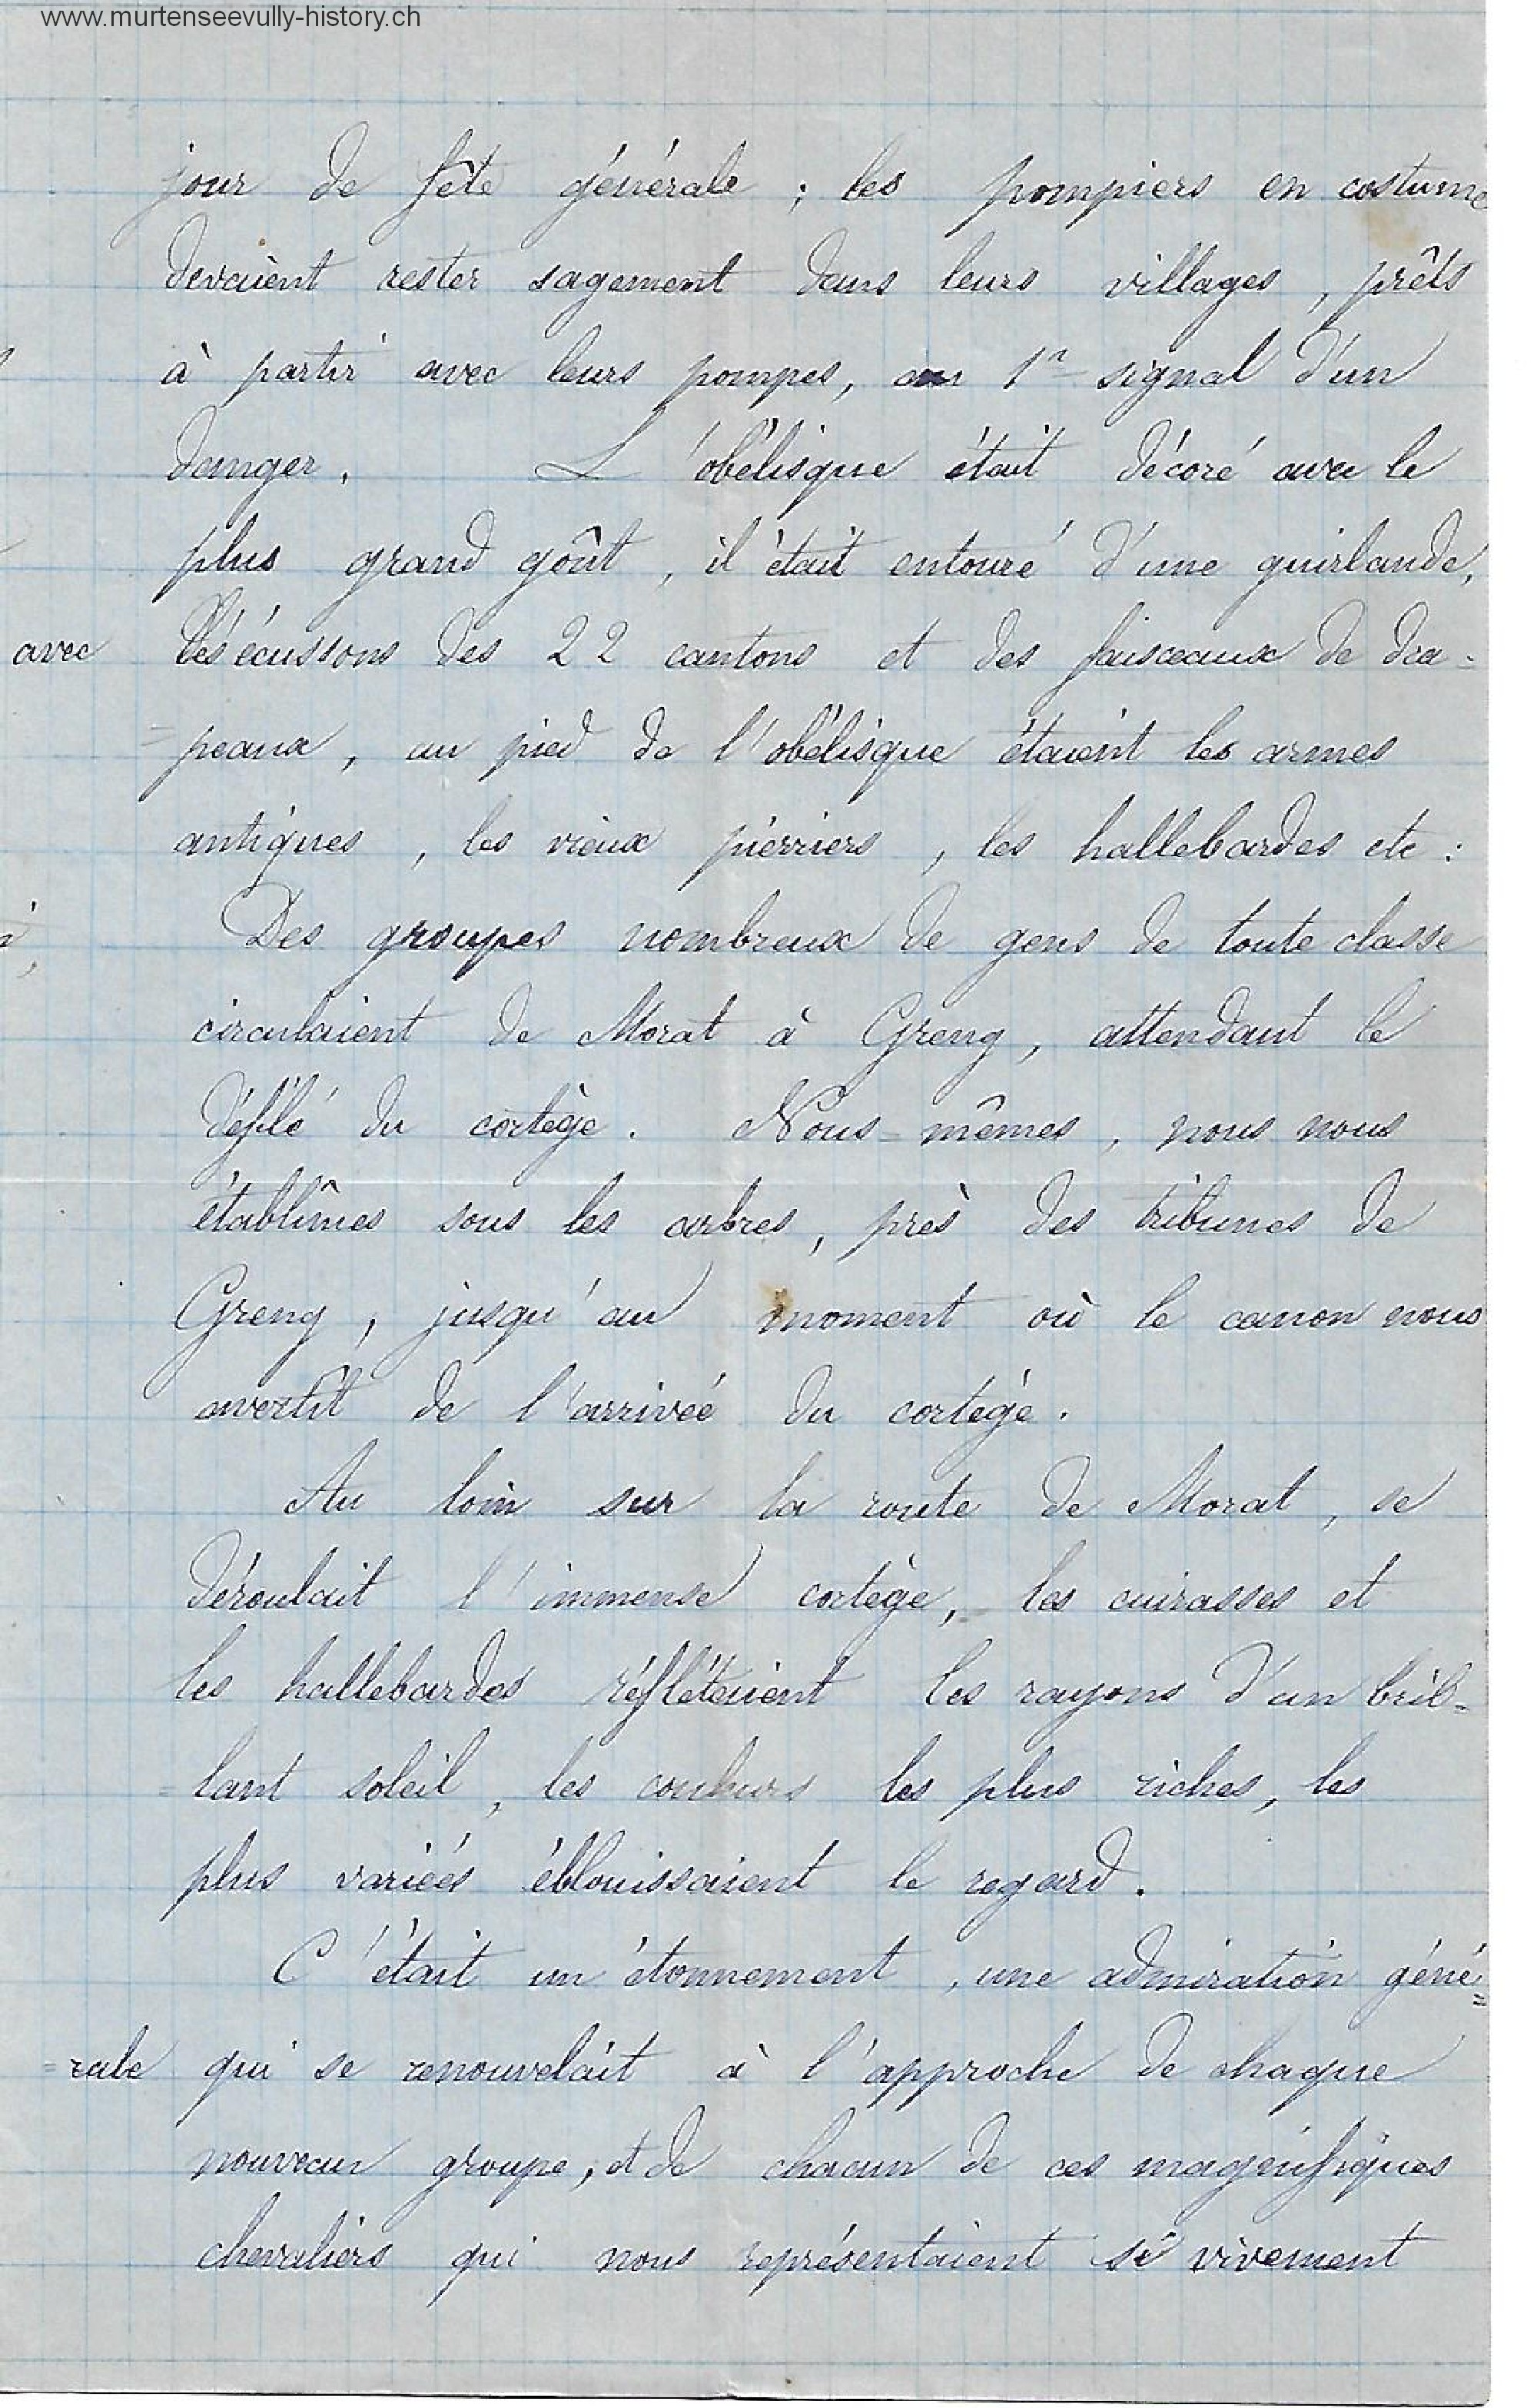 www.murtenseevully-history.ch
jour de fête générale ; les pompiers en costume
devaient rester sagement dans leurs villages , prêts
à partir avec leurs pompes, au 1r signal d'un
danger . L'obélisque était décoré avec le
plus grand goût , il était entouré d'une guirlande,
avec les écussons des 22 cantons et des faisceaux de dra-
=peaux , au pied de l'obélisque étaient les armes
antiques , les vieux pierriers , les hallebardes etc :
Des groupes nombreux de gens de toute classe
circulaient de Morat à Greng , attendant le
défilé du cortège . Nous=mêmes , nous nous
établîmes sous les arbres , près des tribunes de
Greng , jusqu'au moment où le canon nous
avertît de l'arrivée du cortège .
Au loin sur la route de Morat , se
déroulait l'immense cortège, les cuirasses et
les hallebardes réflétaient les rayons d'un bril=
=lant soleil , les couleurs les plus riches, les
plus variées éblouissaient le regard .
C'était un étonnement , une admiration géné=
=rale qui se renouvelait à l'approche de chaque
nouveau groupe , et de chacun de ces magnifiques
chevaliers qui nous représentaient si vivement